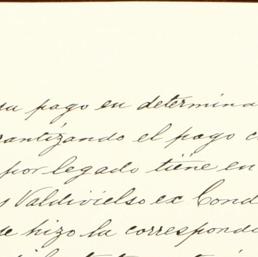 su pago en determina
rantizando el pago c
por legado tiene en
s Valdivielso ex Cond
se hizo la correspondi